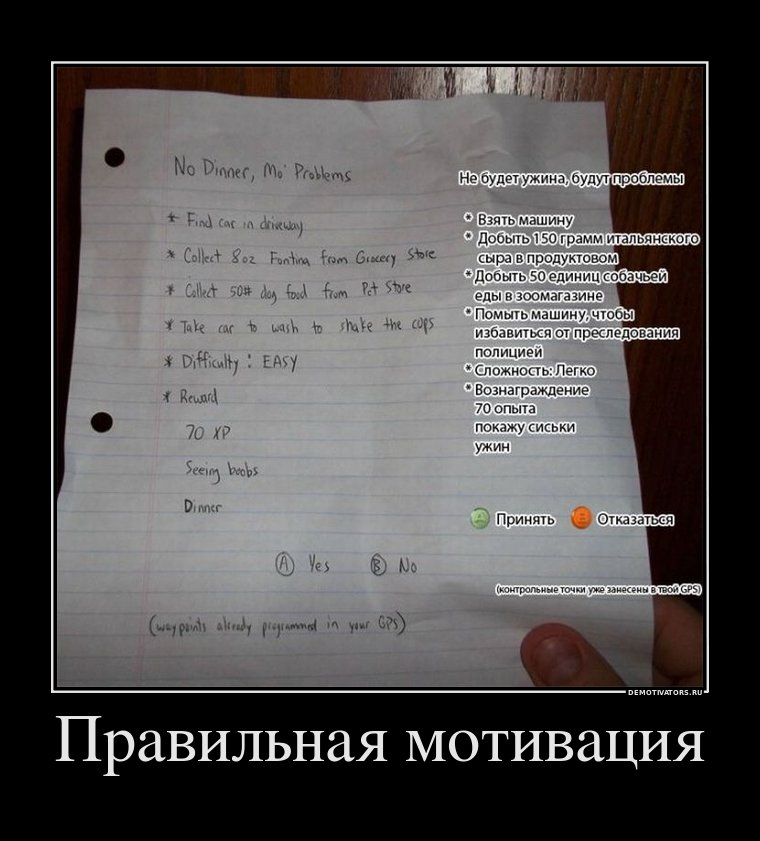 No Dinner, Mo' Problems
* Find car in driveway
* Collect 8oz Fontina from Grocery Store
* Collect 50# dog food from Pet Store
* Take car to wash to shake the cops
* Difficulty: EASY
* Reward
70 XP
Seeing boobs
Dinner
A Yes B No
(waypoints already programmed in your GPS)
Не будет ужина, будут проблемы
* Взять машину
* Добыть 150 грамм итальянского
сыра в продуктовом
* Добыть 50 единиц собачьей
еды в зоомагазине
* Помыть машину, чтобы
избавиться от преследования
полицией
* Сложность: Легко
* Вознаграждение
70 опыта
покажу сиськи
ужин
Принять Отказаться
(контрольные точки уже занесены в твой GPS)
DEMOTIVATORS.RU
Правильная мотивация